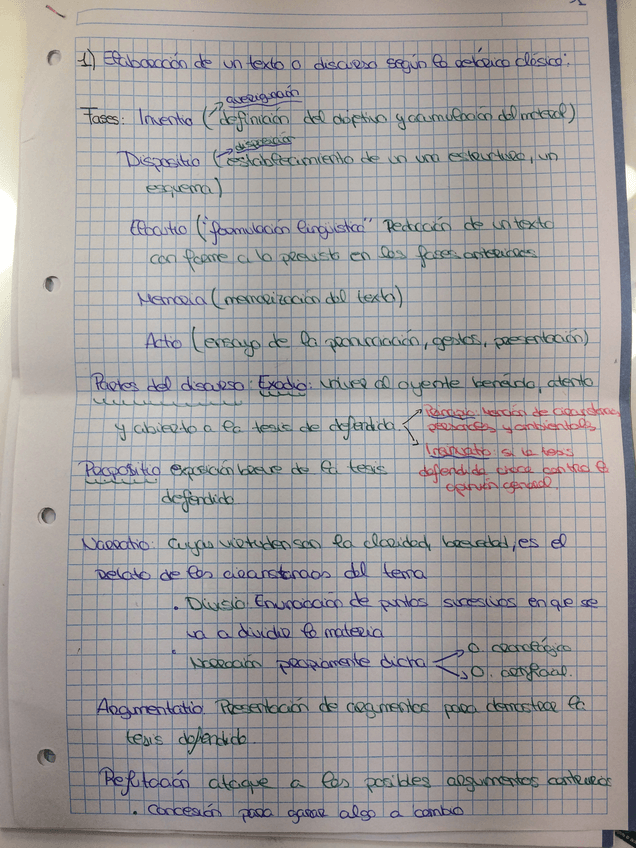 1) Elaboración de un texto o discurso según la retórica clásica:
averiguación
Fases: Inventio (definición del objetivo y acumulación del material)
disposición
Dispositio (establecimiento de un una estructura, un
esquema)
Elocutio ("formulación lingüística" Redacción de un texto
conforme a lo previsto en las fases anteriores
Memoria (memorización del texto)
Actio (ensayo de la pronunciación, gestos, presentación)
Partes del discurso: Exodio: volver al oyente benévolo, atento
y abierto a la tesis de defendida.
de circunstancias,
personales y ambientales.
Insinuatio: si la tesis
defendida choca contra la
opinión general.
Propositio exposición breve de la tesis
defendida
Narratio: Cuyas virtudes son la claridad, brevedad, es el
relato de las circunstancias del tema
• Divisió Enunciación de puntos sucesivos en que se
va a dividir la materia
• Narración propiamente dicta
O. cronológico
O. artificial.
Argumentatio Presentación de argumentos para demostrar la
tesis defendida.
Refutación ataque a los posibles argumentos contrarios
• Concesión para ganar algo a cambio